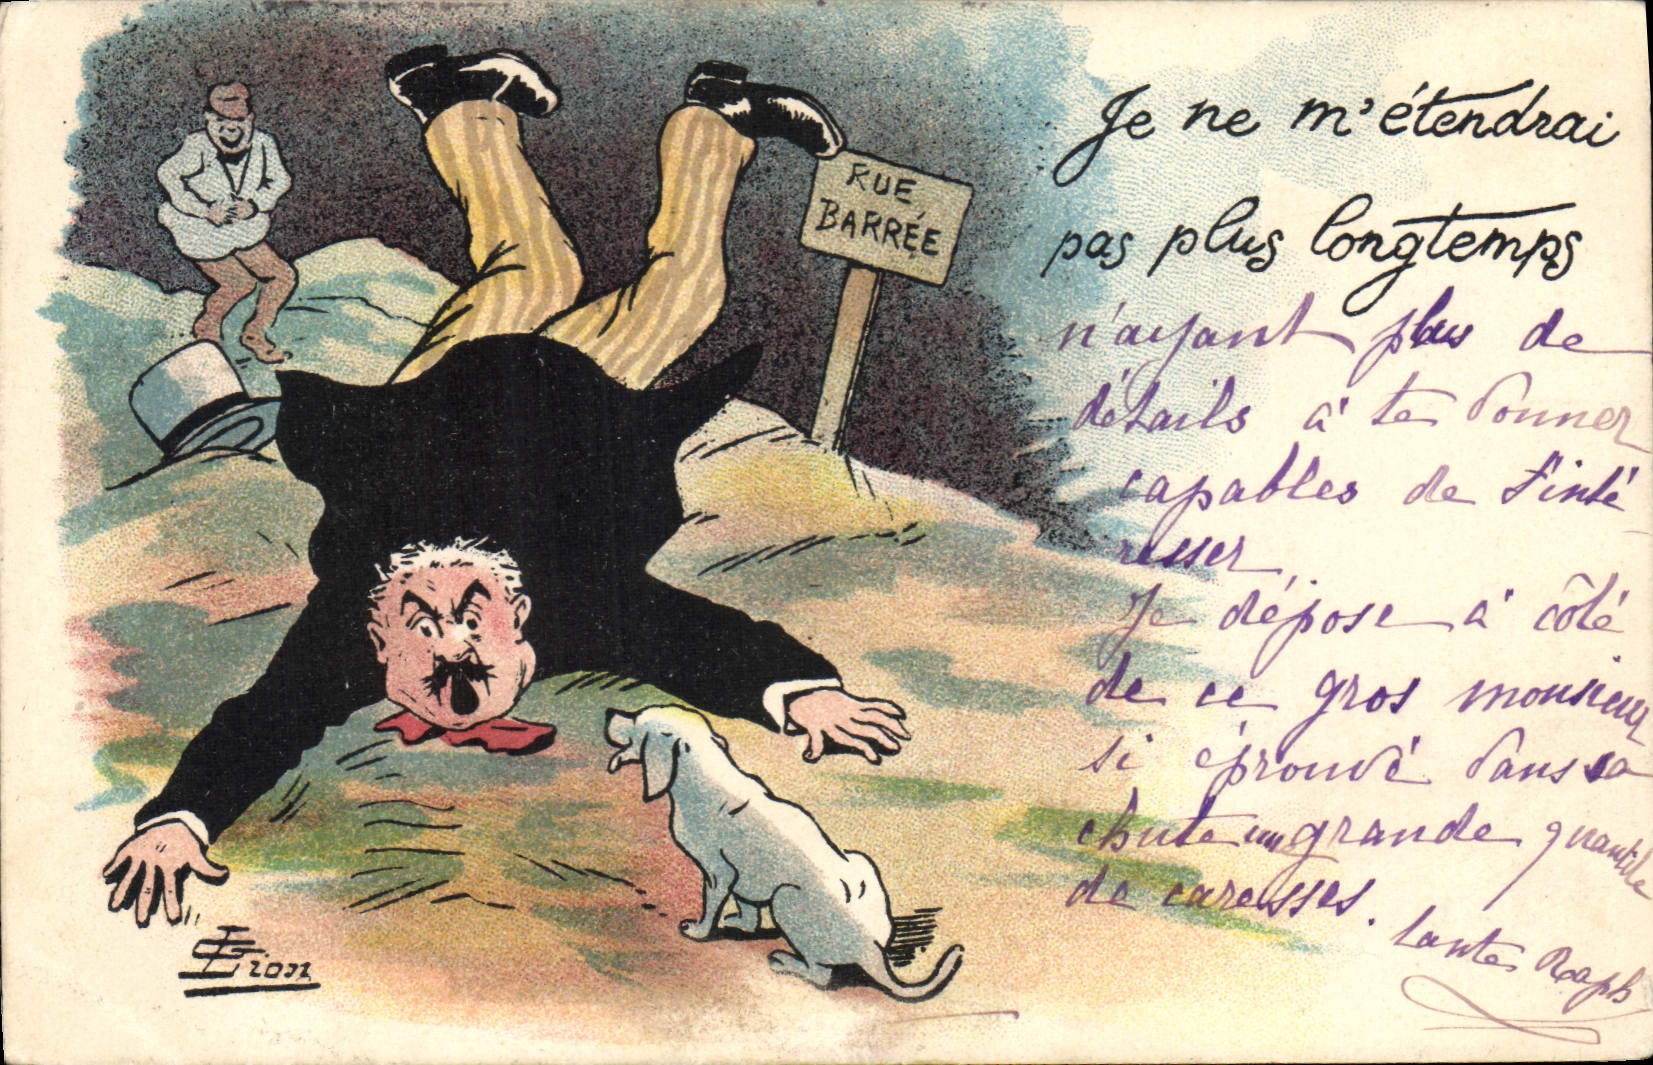 RUE
BARRÉE
Je ne m'étendrai
pas plus longtemps
n'ayant plus de
détails à te donner
capables de t'inté
resser
Je dépose à côté
de ce gros monsieur
si éprouvé dans sa
chute une grande quantité
de caresses.
tante Raph